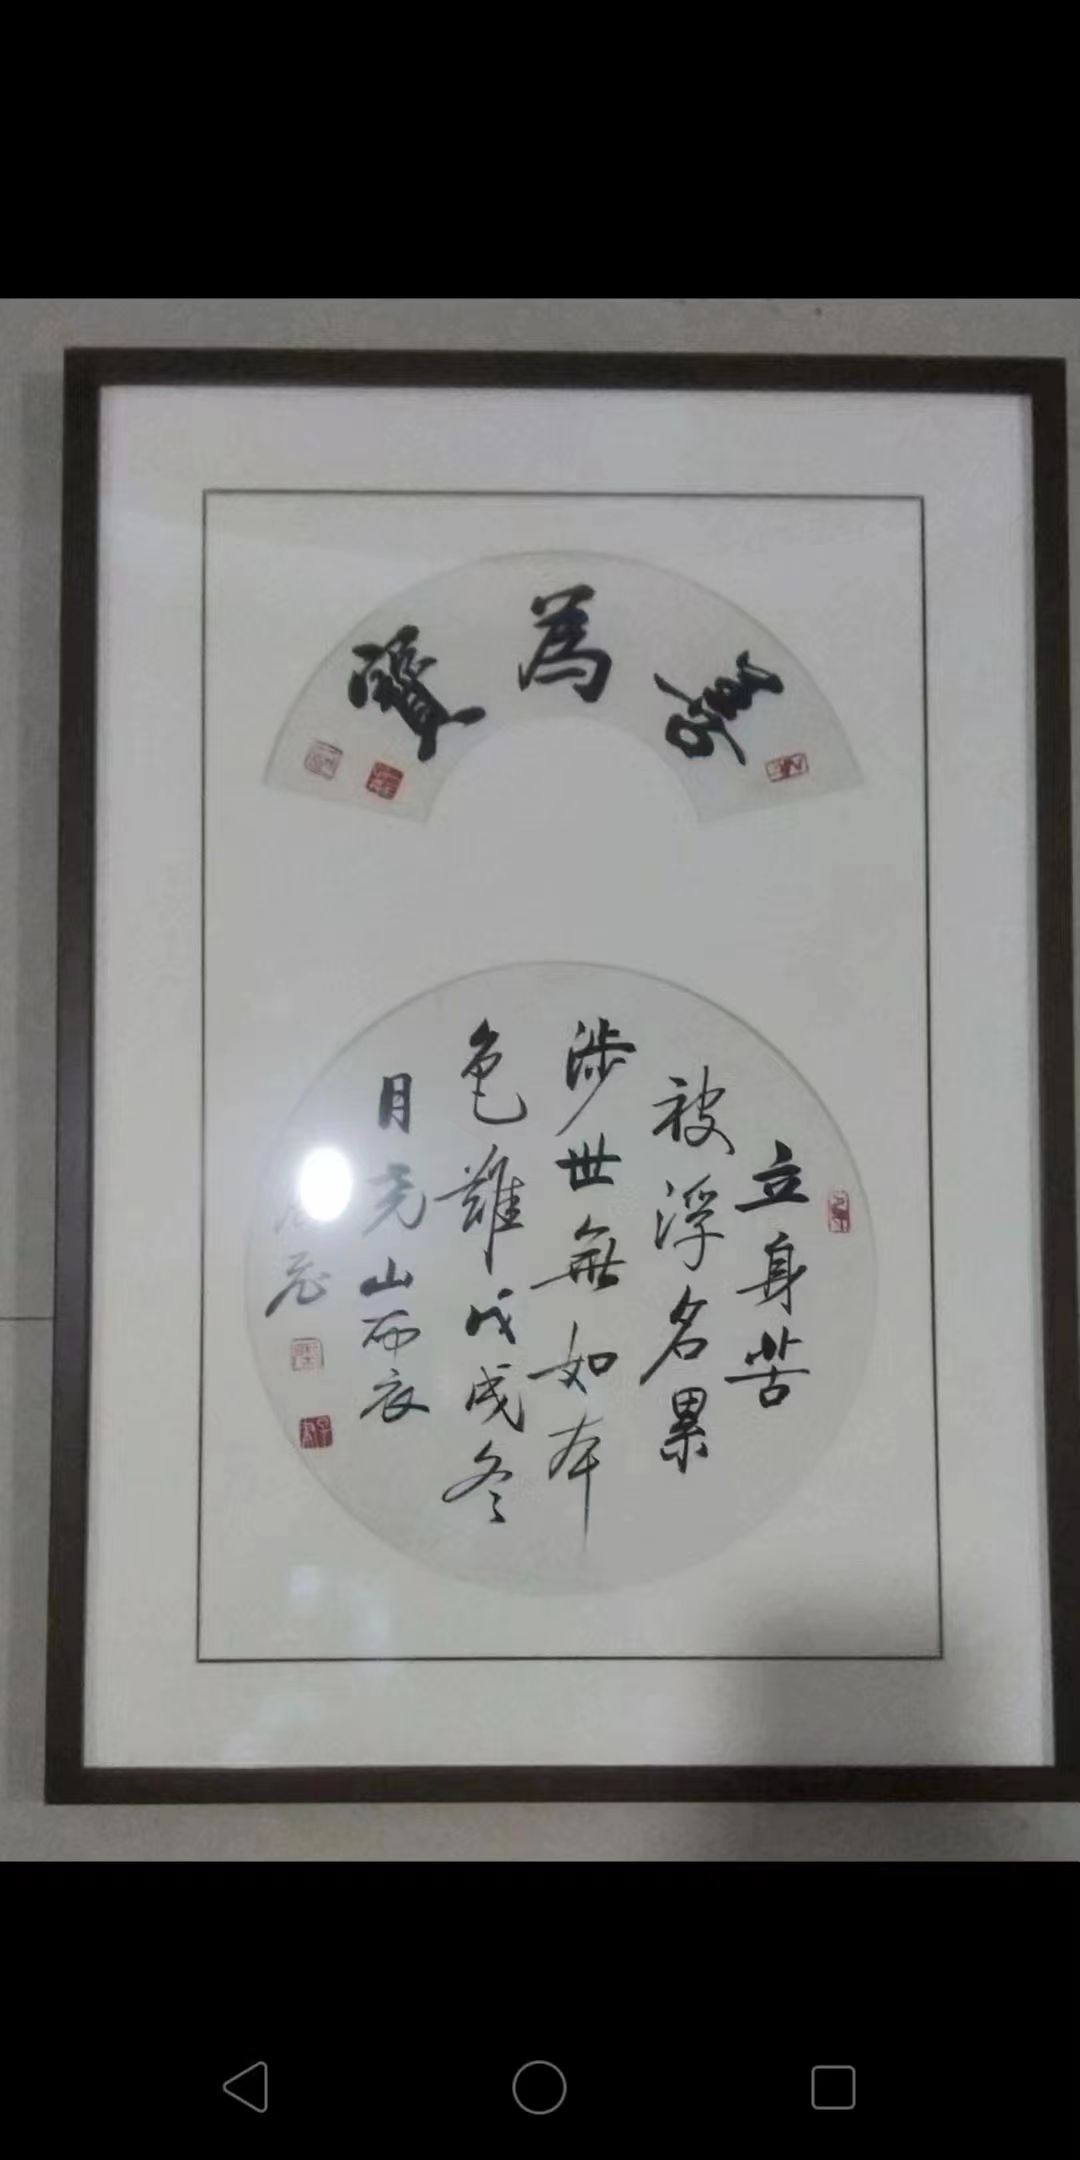 善為寶
立身苦
被浮名累
涉世無如本
色難戊戌冬
月堯山布衣